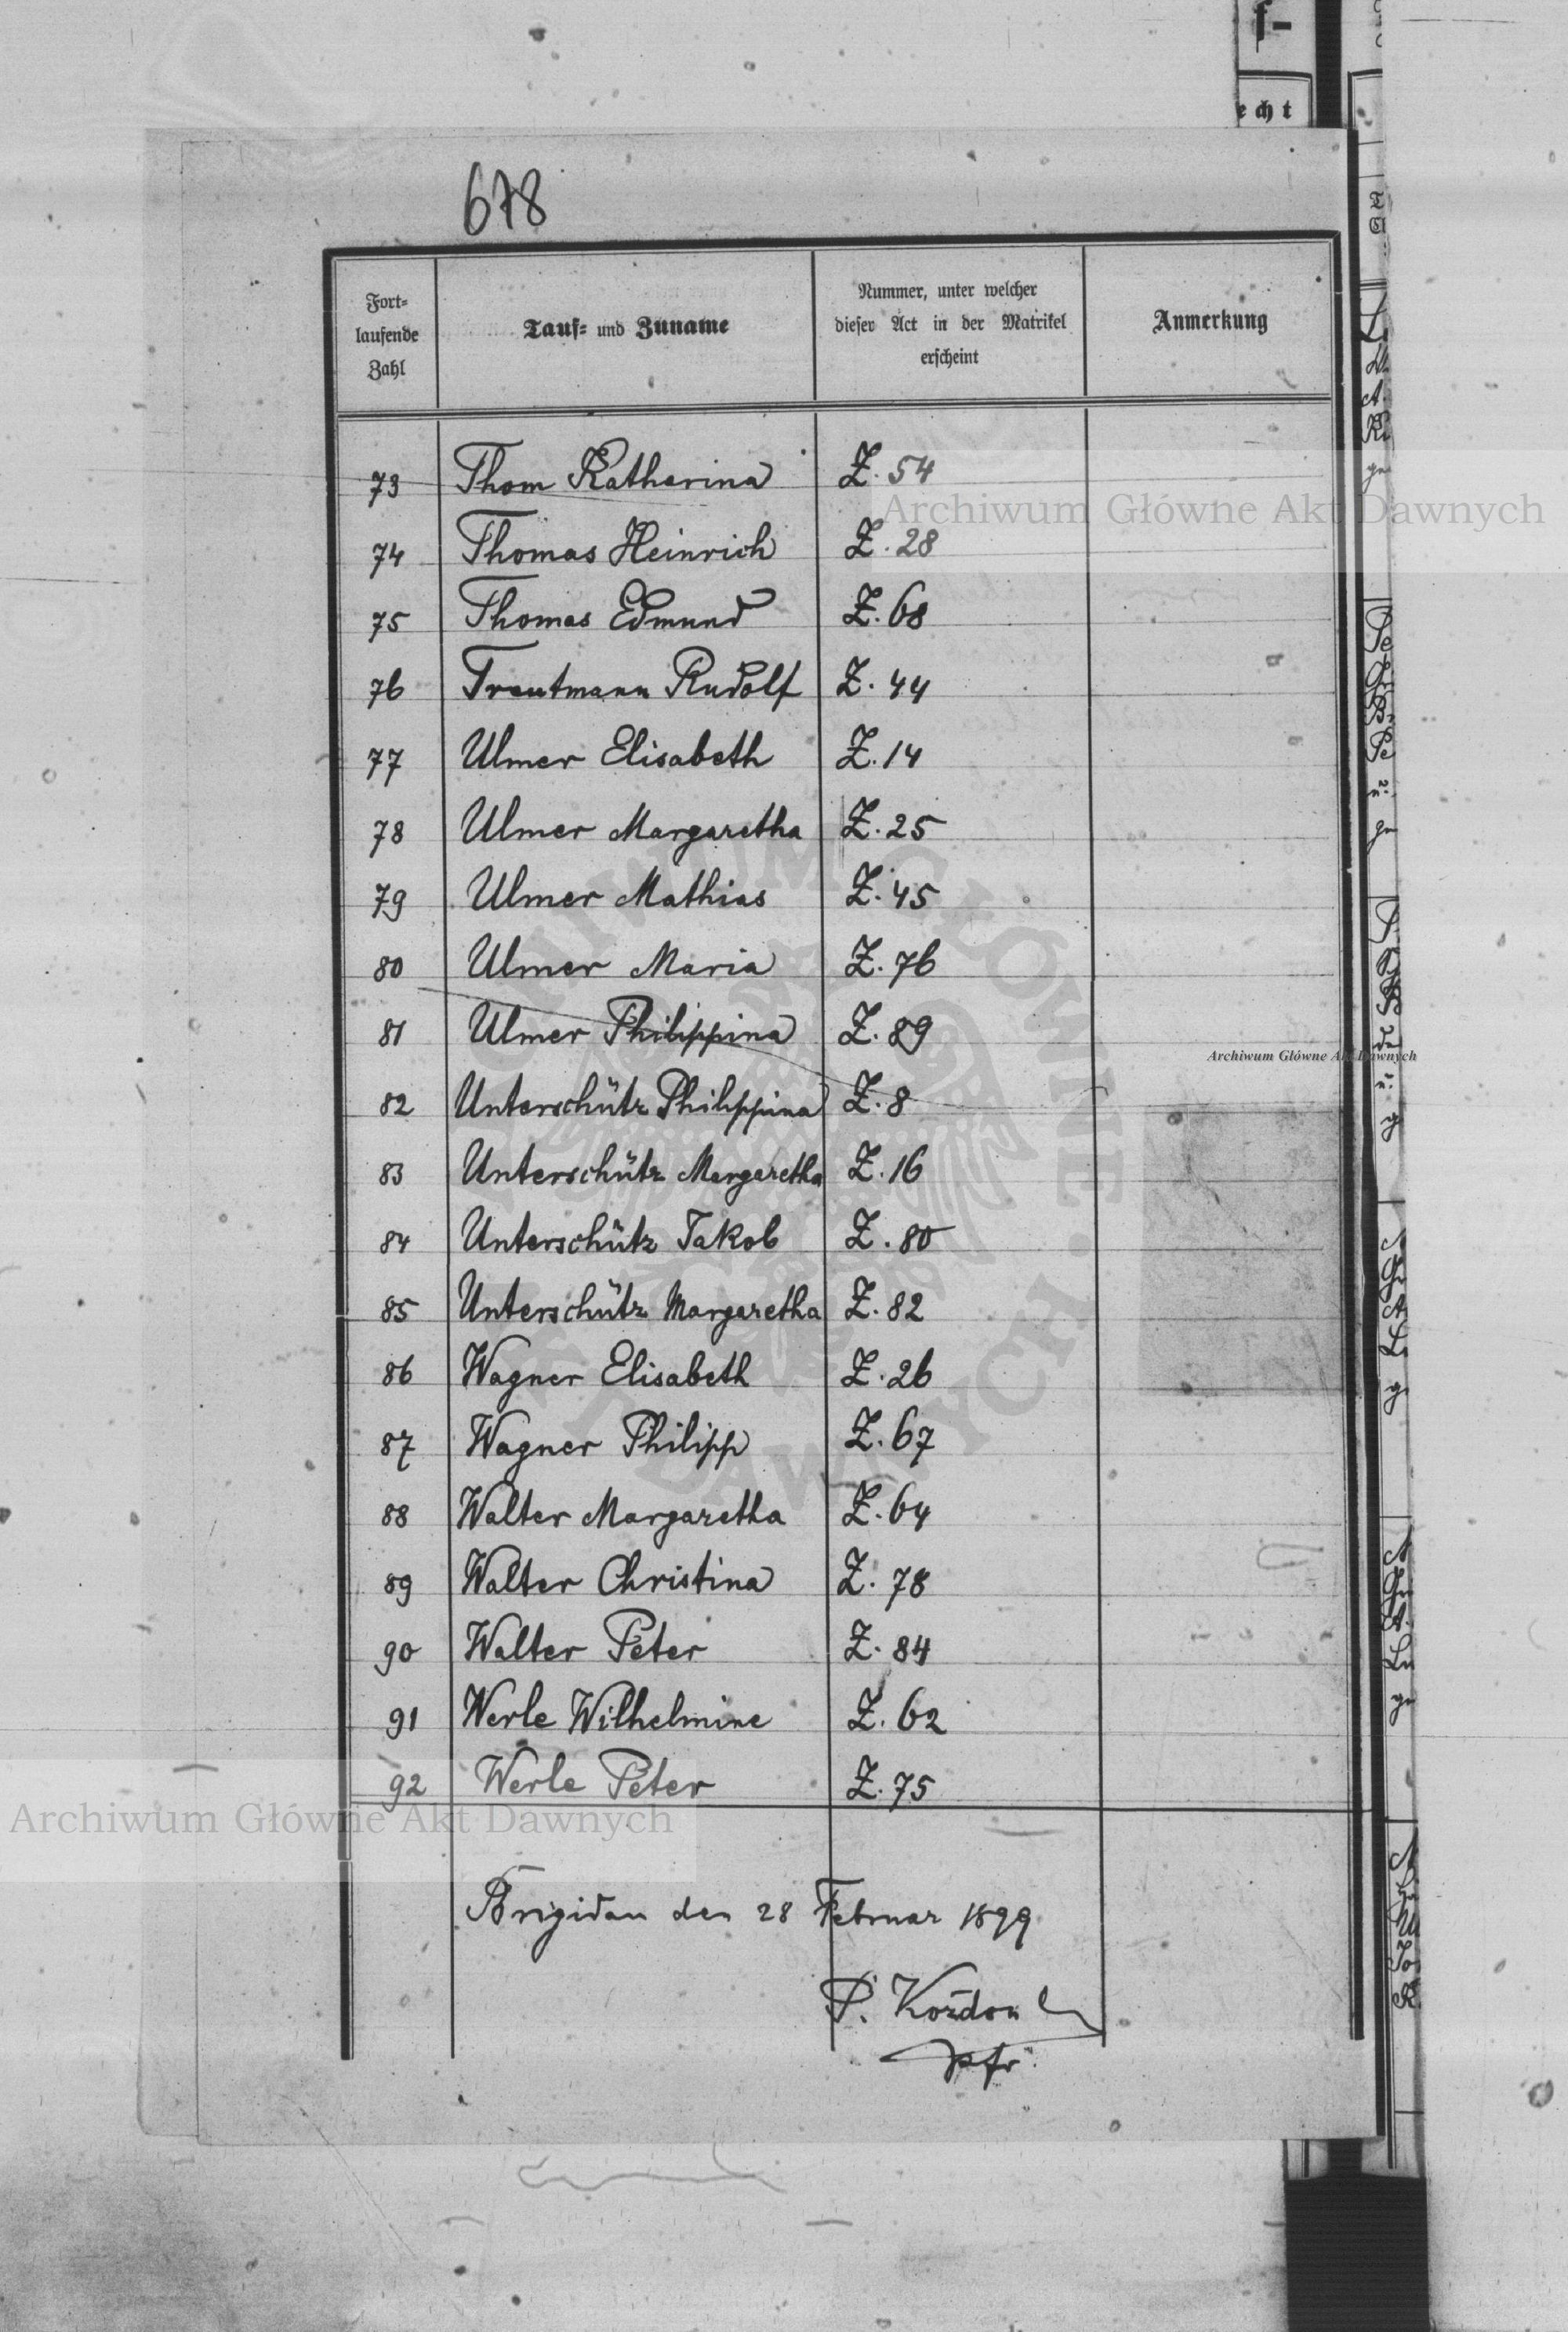 f-
echt
678
Fort-
laufende
Zahl
Tauf- und Zuname
Nummer, unter welcher
dieser Act in der Matrikel
erscheint
Anmerkung
73 Thom Katharina Z. 54
Archiwum Główne Akt Dawnych
74 Thomas Heinrich Z. 28
75 Thomas Edmund Z. 68
76 Trautmann Rudolf Z. 44
77 Ulmer Elisabeth Z. 14
78 Ulmer Margaretha Z. 25
79 Ulmer Mathias Z. 45
80 Ulmer Maria Z. 76
81 Ulmer Philippina Z. 89
Archiwum Główne Akt Dawnych
82 Unterschütz Philippina Z. 8
83 Unterschütz Margaretha Z. 16
84 Unterschütz Jakob Z. 80
85 Unterschütz Margaretha Z. 82
86 Wagner Elisabeth Z. 26
87 Wagner Philipp Z. 67
88 Walter Margaretha Z. 64
89 Walter Christina Z. 78
90 Walter Peter Z. 84
91 Werle Wilhelmine Z. 62
92 Werle Peter Z. 75
Archiwum Główne Akt Dawnych
Brigidau den 28 Februar 1899
P. Kozdon
Pfr.